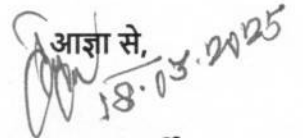 आज्ञा से,
18.03.2025